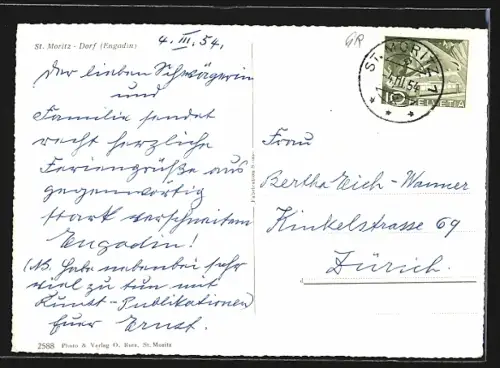 St. Moritz - Dorf (Engadin)
4. III. 54.
Der lieben Schwägerin
und
Familie sendet
recht herzliche
Feriengrüße aus
gegenwärtig
stark verschneitem
Engadin!
(NB. Habe nebenbei sehr
viel zu tun mit
Kunst-Publikationen)
Euer Ernst.
2588 Photo & Verlag O. Rutz, St. Moritz
GR
ST. MORITZ 1
III. 54
10 HELVETIA
Frau
Bertha Eich-Wanner
Kinkelstrasse 69
Zürich.